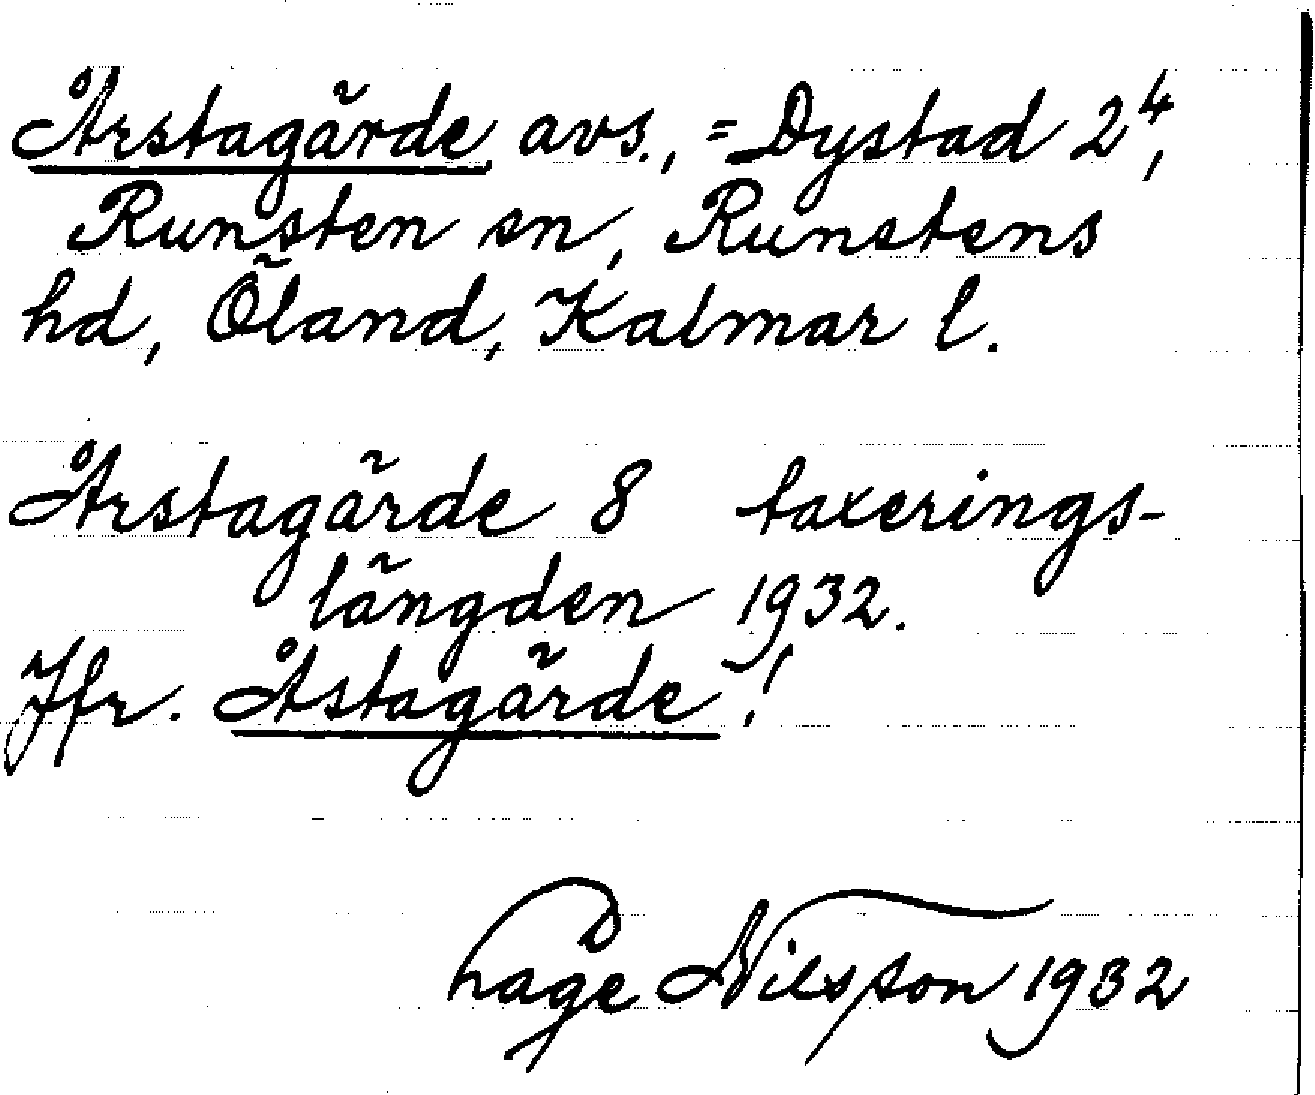 Årstagärde, avs., = Dystad 2⁴,
Runsten sn, Runstens
hd, Öland, Kalmar l.
Årstagärde 8 taxerings-
längden 1932.
Jfr. Åstagärde!
Hage Nilsson 1932